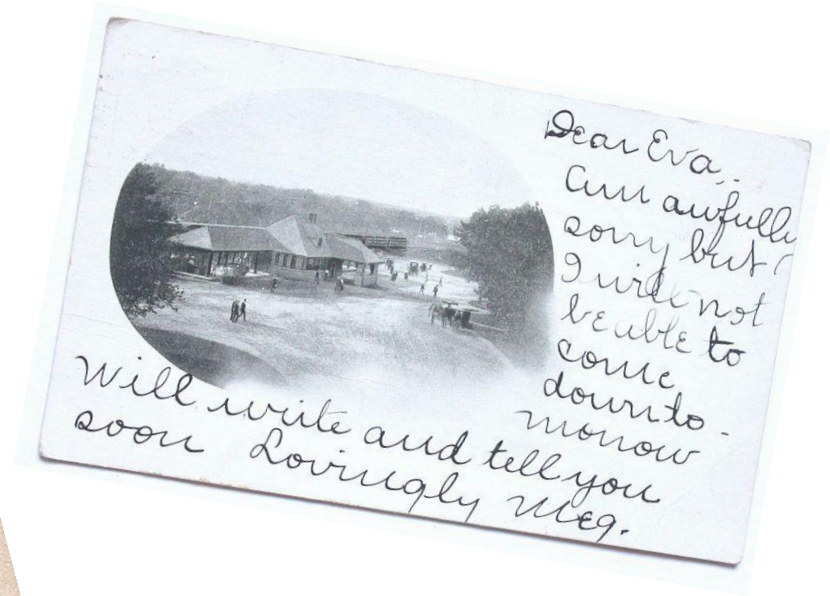 Dear Eva,.
Am awfully
sorry but
I will not
be able to
come
down to-
morrow
Will write and tell you
soon Lovingly Meg.